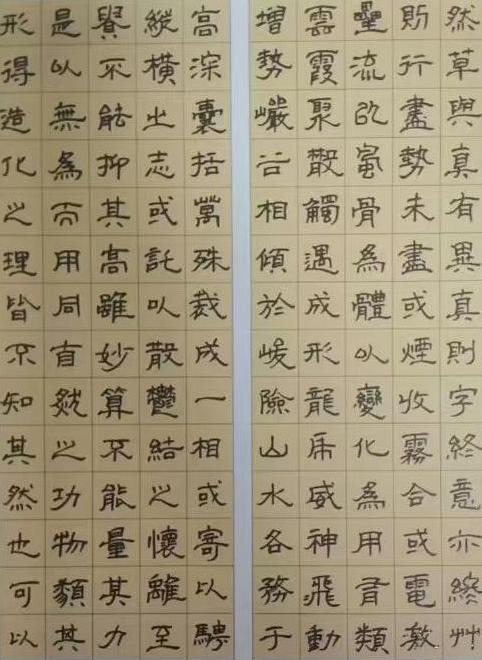 然草與真有異真則字終意亦終艸
則行盡勢未盡或煙收霧合或電激
星流以風骨為體以變化為用有類
雲霞聚散觸遇成形龍虎威神飛動
增勢巖谷相傾於峻險山水各務于
高深囊括萬殊裁成一相或寄以騁
縱橫之志或託以散鬱結之懷雖至
貴不能抑其高雖妙算不能量其力
是以無為而用同自然之功物類其
形得造化之理皆不知其然也可以